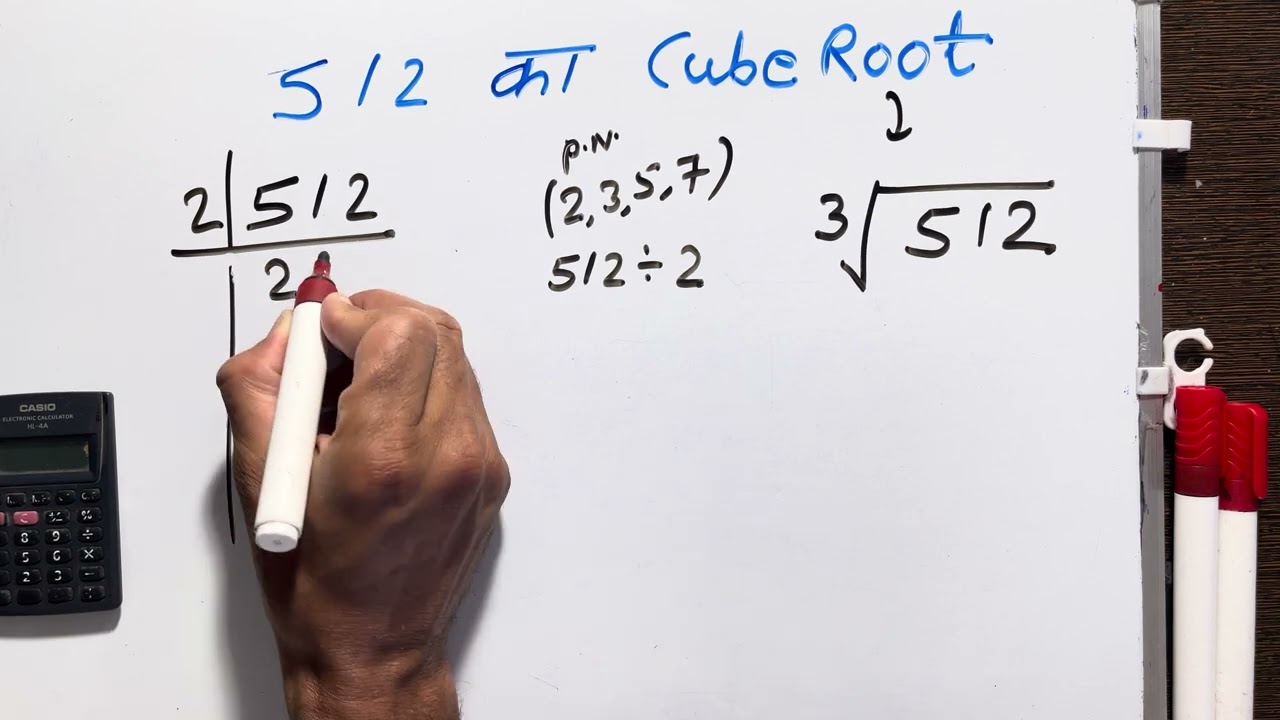 512 का Cube Root
P.N.
(2, 3, 5, 7)
512 ÷ 2
2 | 512
2
³√512
CASIO
ELECTRONIC CALCULATOR
HL-4A
C
8 9 ÷
5 6 ×
2 3 −